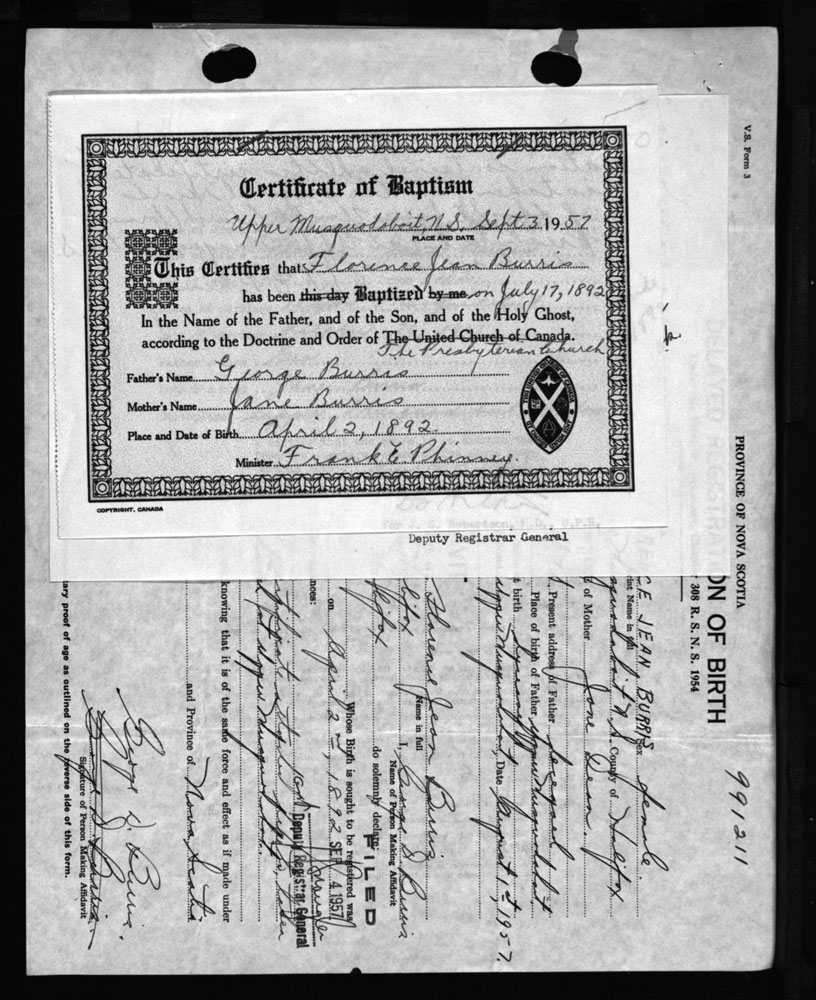 Certificate of Baptism
Upper Musquodoboit, N.S. Sept. 3, 1957
PLACE AND DATE
This Certifies that Florence Jean Burris
has been this day Baptized by me, on July 17, 1892
In the Name of the Father, and of the Son, and of the Holy Ghost,
according to the Doctrine and Order of The United Church of Canada.
The Presbyterian Church
Father's Name George Burris
Mother's Name Jane Burris
Place and Date of Birth April 2, 1892
Minister Frank E. Phinney.
COPYRIGHT, CANADA
for J. S. Robertson, M.D., D.P.H.
Deputy Registrar General
V.S. Form 3
PROVINCE OF NOVA SCOTIA
ON OF BIRTH
308 R. S. N. S. 1954
991211
CE JEAN BURRIS Sex female
int Name in full
N.S. County of Halifax
of Mother Jane Dean
Present address of Father deceased
Place of birth of Father Upper Musquodoboit
t birth
Upper Musquodoboit, Date August 1st, 1957.
I, George D Burris
Name of Person Making Affidavit
lifax do solemnly declare:
Florence Jean Burris
Name in full
FILED
Whose Birth is sought to be registered was
on April 2nd, 1892
SEP 4 1957
nces:
Deputy Registrar General
at Upper Musquodoboit
knowing that it is of the same force and effect as if made under
and Province of Nova Scotia
George D. Burris.
George D Burris
Signature of Person Making Affidavit
tary proof of age as outlined on the reverse side of this form.